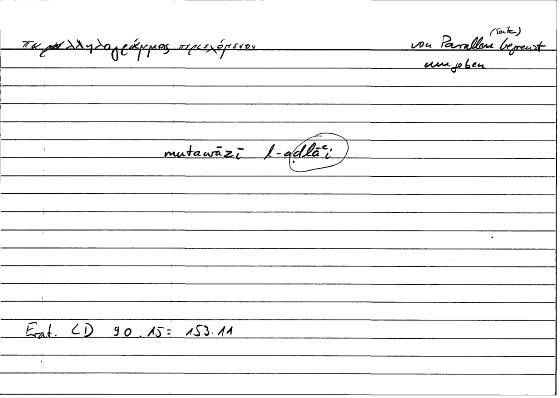 παραλληλογράμμως περιεχόμενον
(Seite)
von Parallelen begrenzt
umgeben
mutawāzī l-aḍlāʿi
Erat. CD 90.15 = 153.11